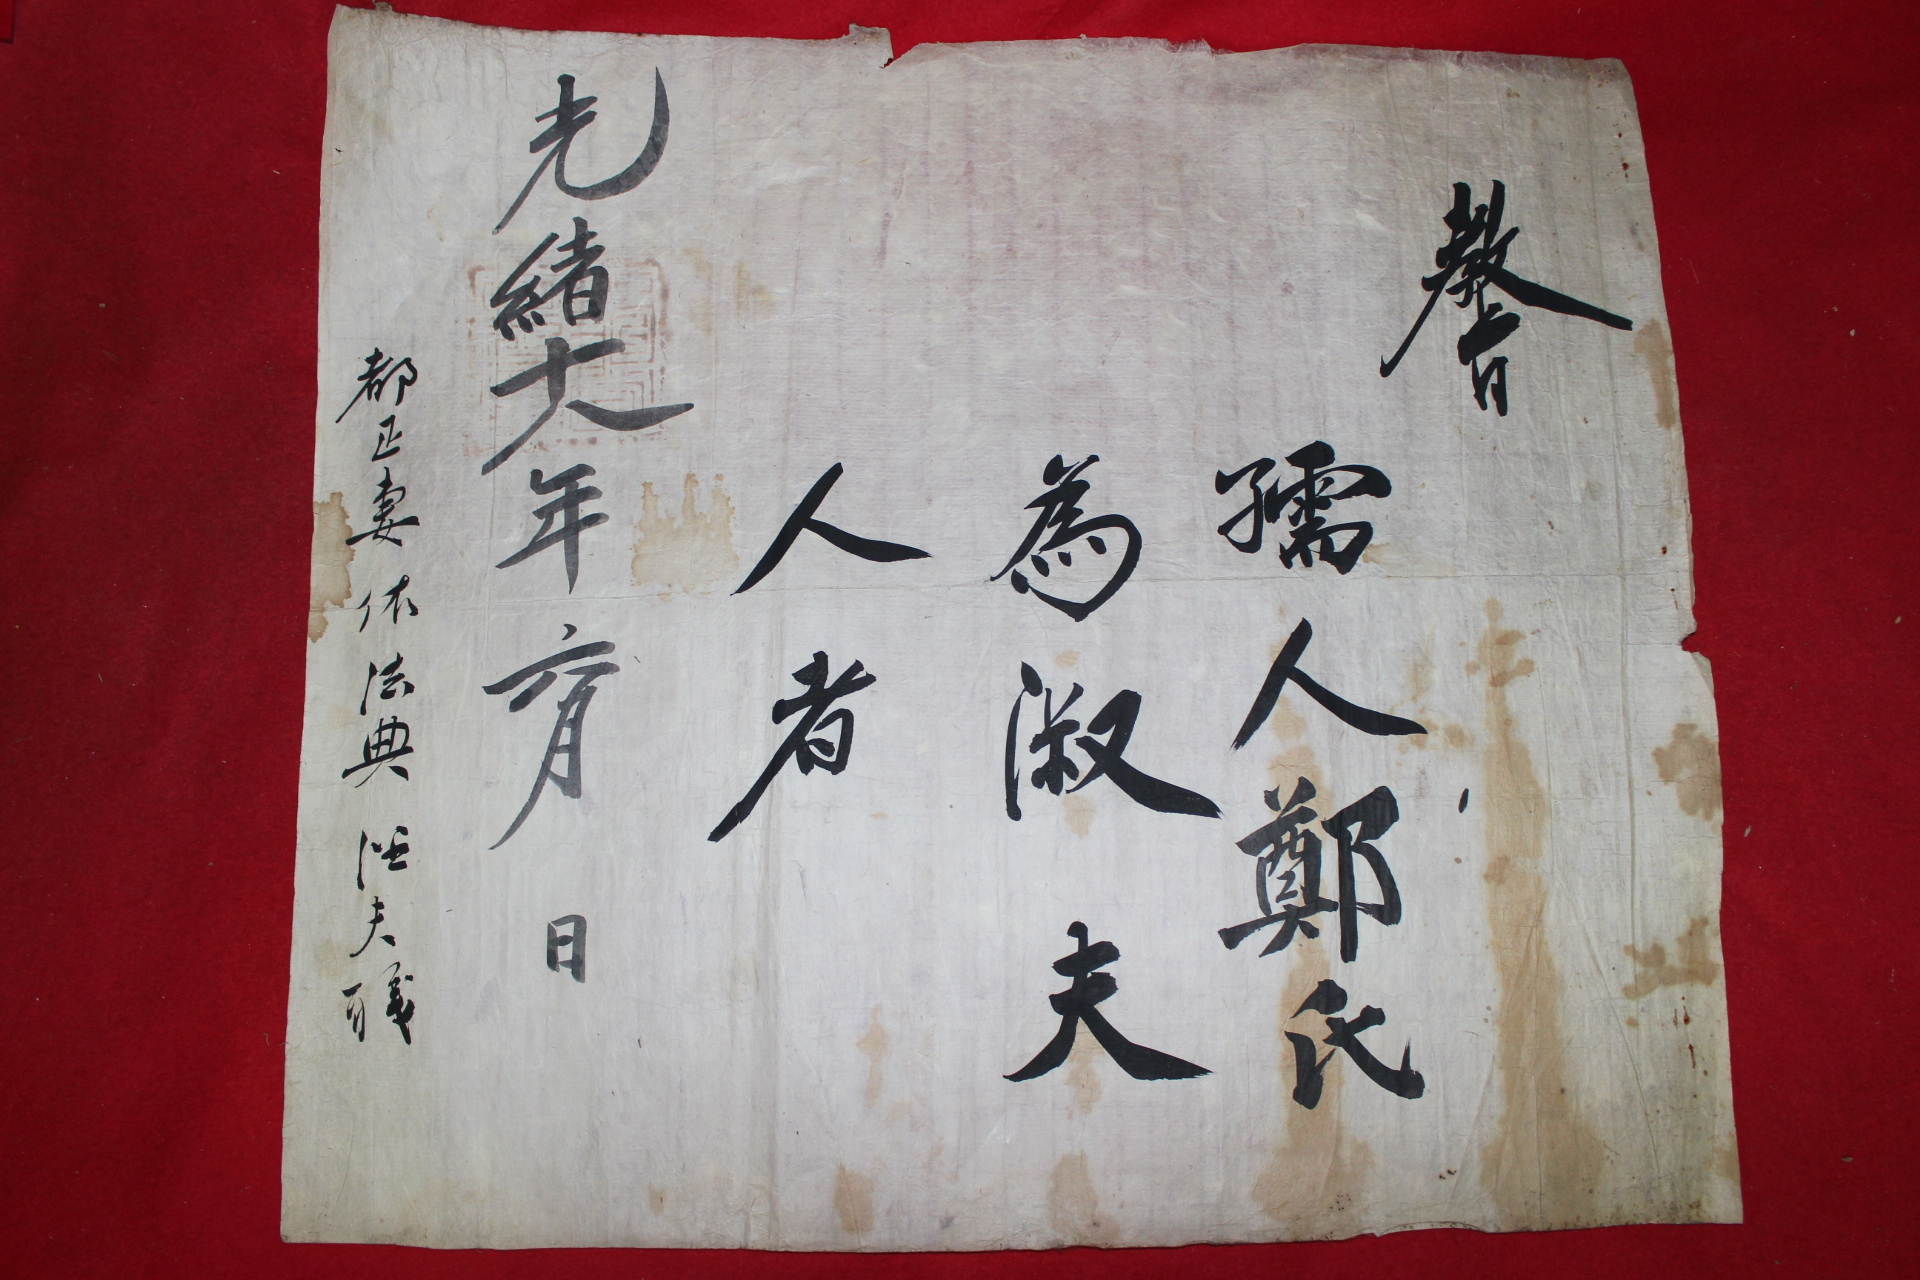 敎旨
孺人鄭氏
為淑夫
人者
光緒十八年六月 日
都正妻依法典從夫職